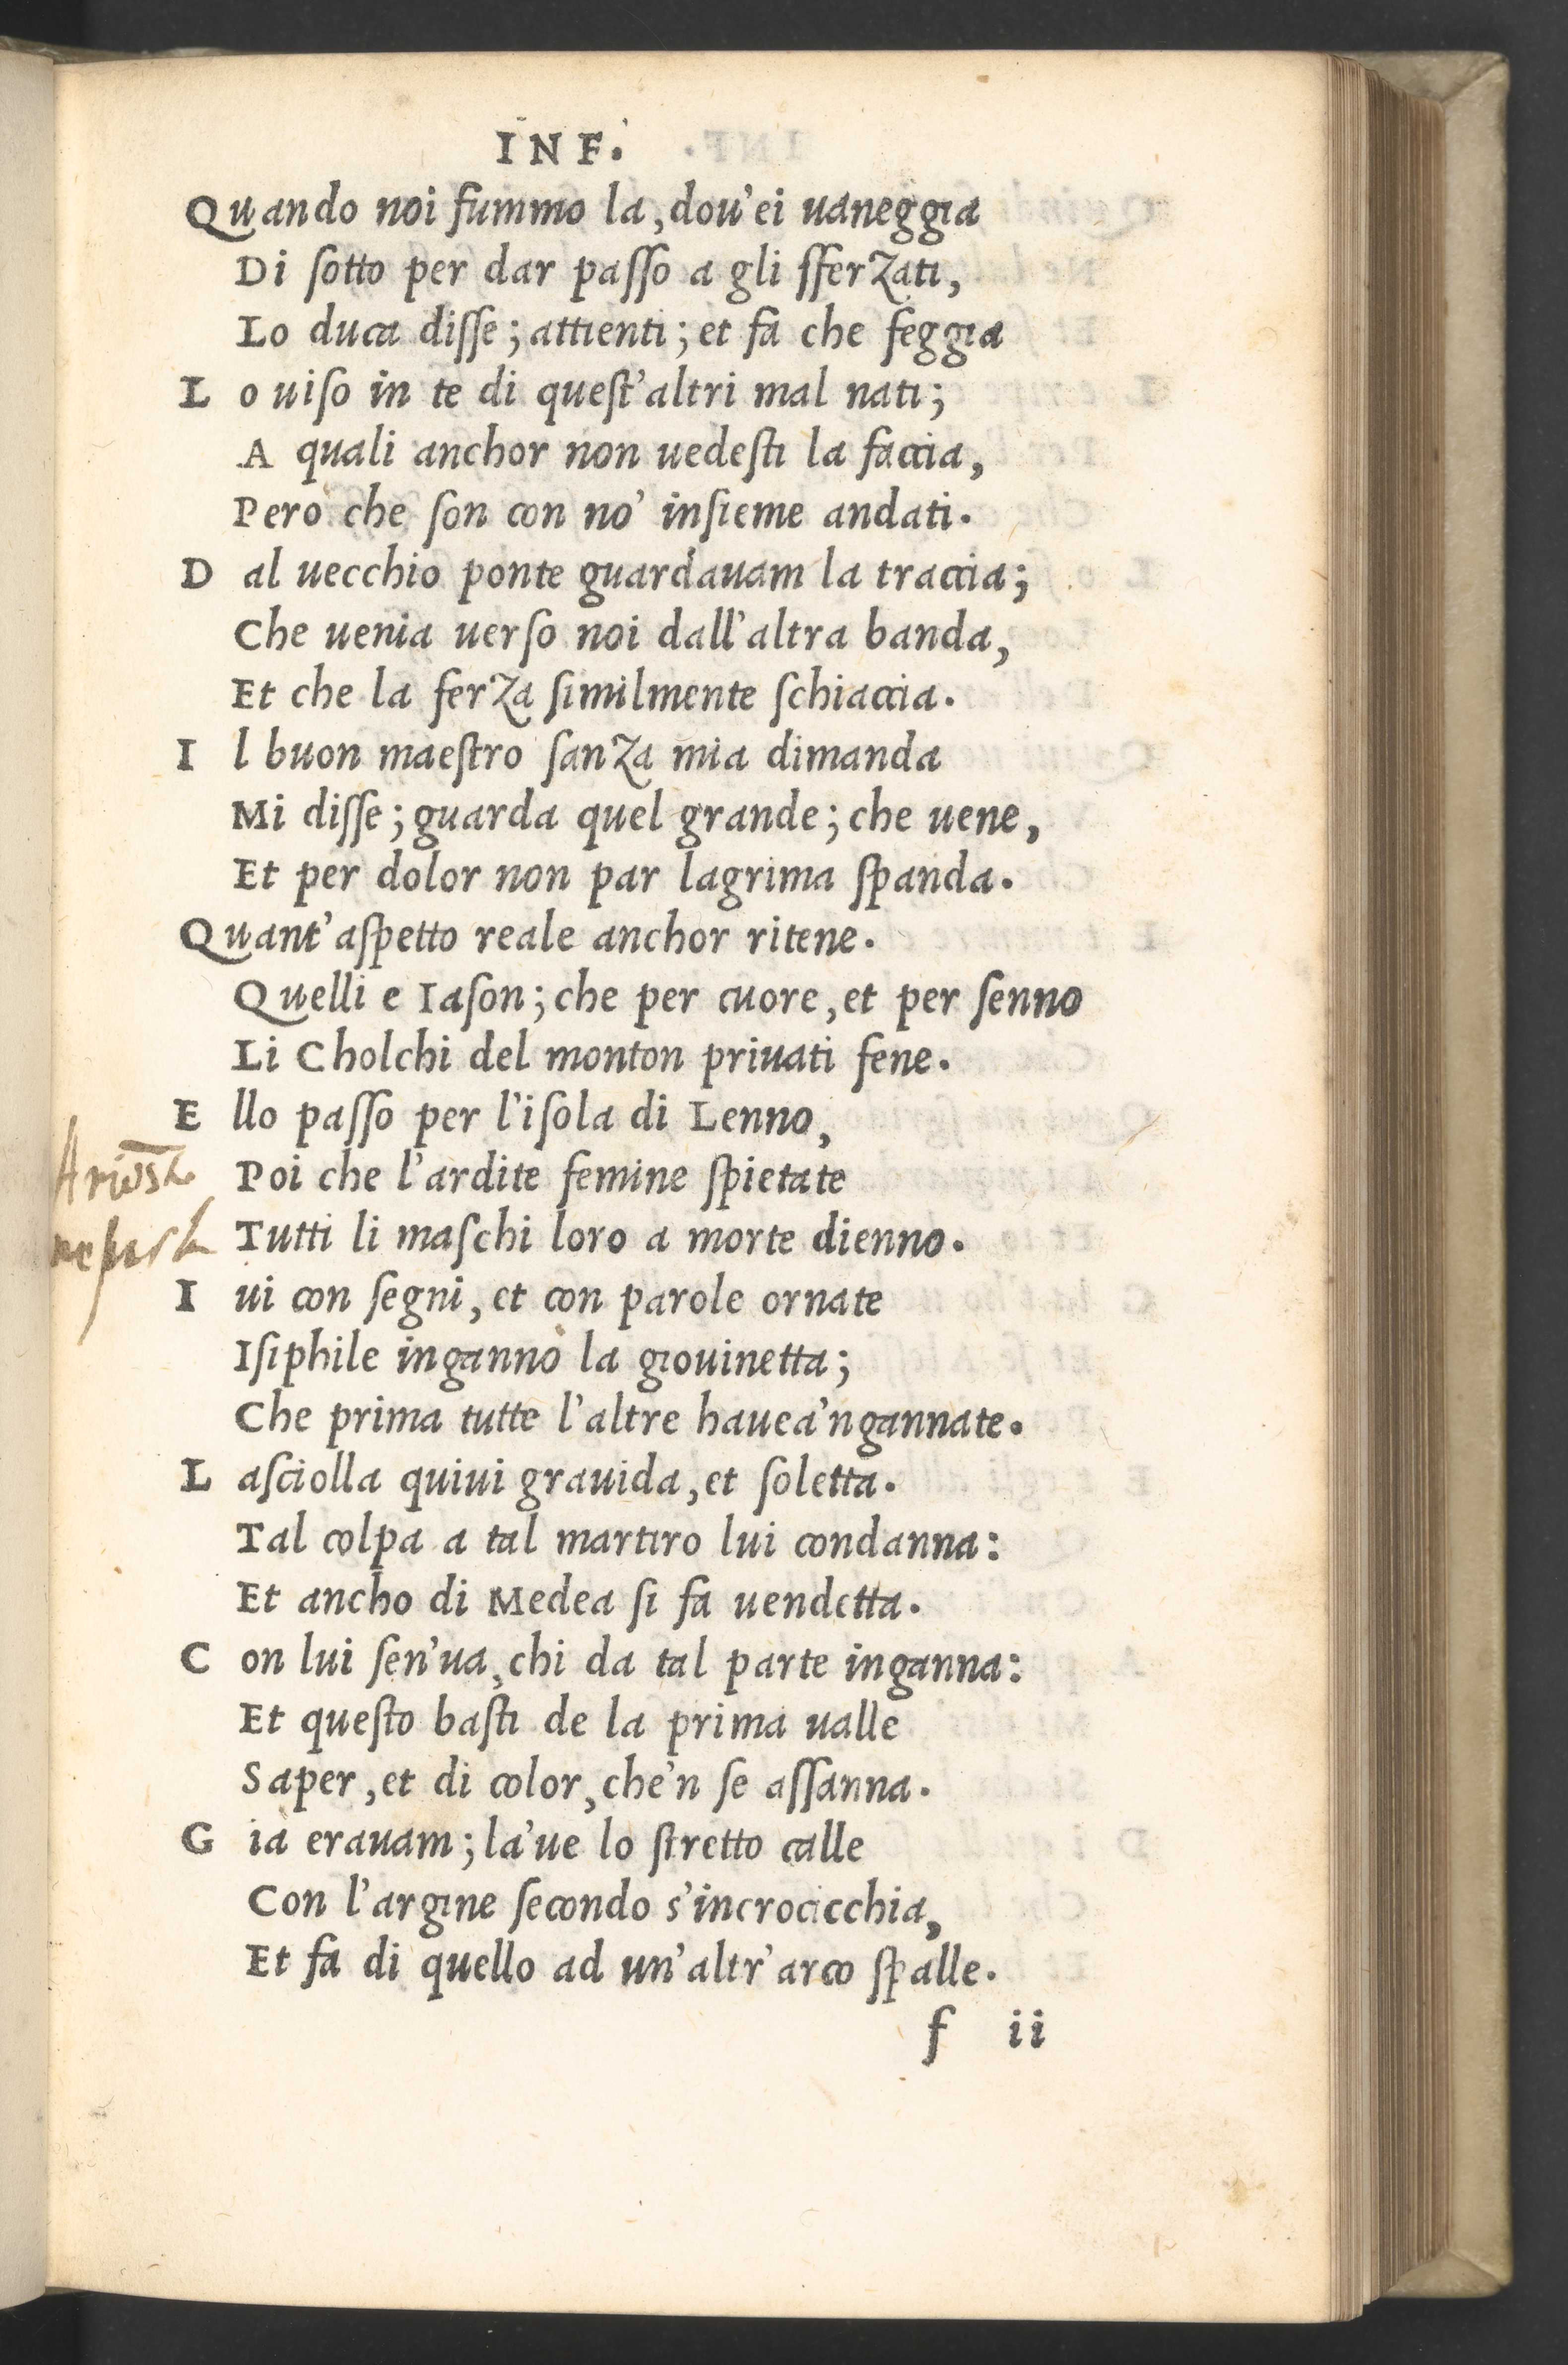 INF.
Quando noi fummo la, dou'ei uaneggia
Di ſotto per dar paſſo a gli ſferzati,
Lo duca diſſe; attienti; et fa che feggia
L o uiſo in te di queſt'altri mal nati;
A quali anchor non uedeſti la faccia,
Pero che ſon con no' inſieme andati.
D al uecchio ponte guardauam la traccia;
Che uenia uerſo noi dall'altra banda,
Et che la ferza ſimilmente ſchiaccia.
I l buon maeſtro ſanza mia dimanda
Mi diſſe; guarda quel grande; che uene,
Et per dolor non par lagrima ſpanda.
Quant'aſpetto reale anchor ritene.
Quelli e Iaſon; che per cuore, et per ſenno
Li Cholchi del monton priuati fene.
E llo paſſo per l'iſola di Lenno,
Poi che l'ardite femine ſpietate
Tutti li maſchi loro a morte dienno.
I ui con ſegni, et con parole ornate
Iſiphile ingannò la giouinetta;
Che prima tutte l'altre hauea'ngannate.
L aſciolla quiui grauida, et ſoletta.
Tal colpa a tal martiro lui condanna:
Et ancho di Medea ſi fa uendetta.
C on lui ſen'ua, chi da tal parte inganna:
Et queſto baſti de la prima ualle
Saper, et di color, che'n ſe aſſanna.
G ià erauam; la'ue lo ſtretto calle
Con l'argine ſecondo s'incrocicchia,
Et fa di quello ad un'altr'arco ſpalle.
f ii